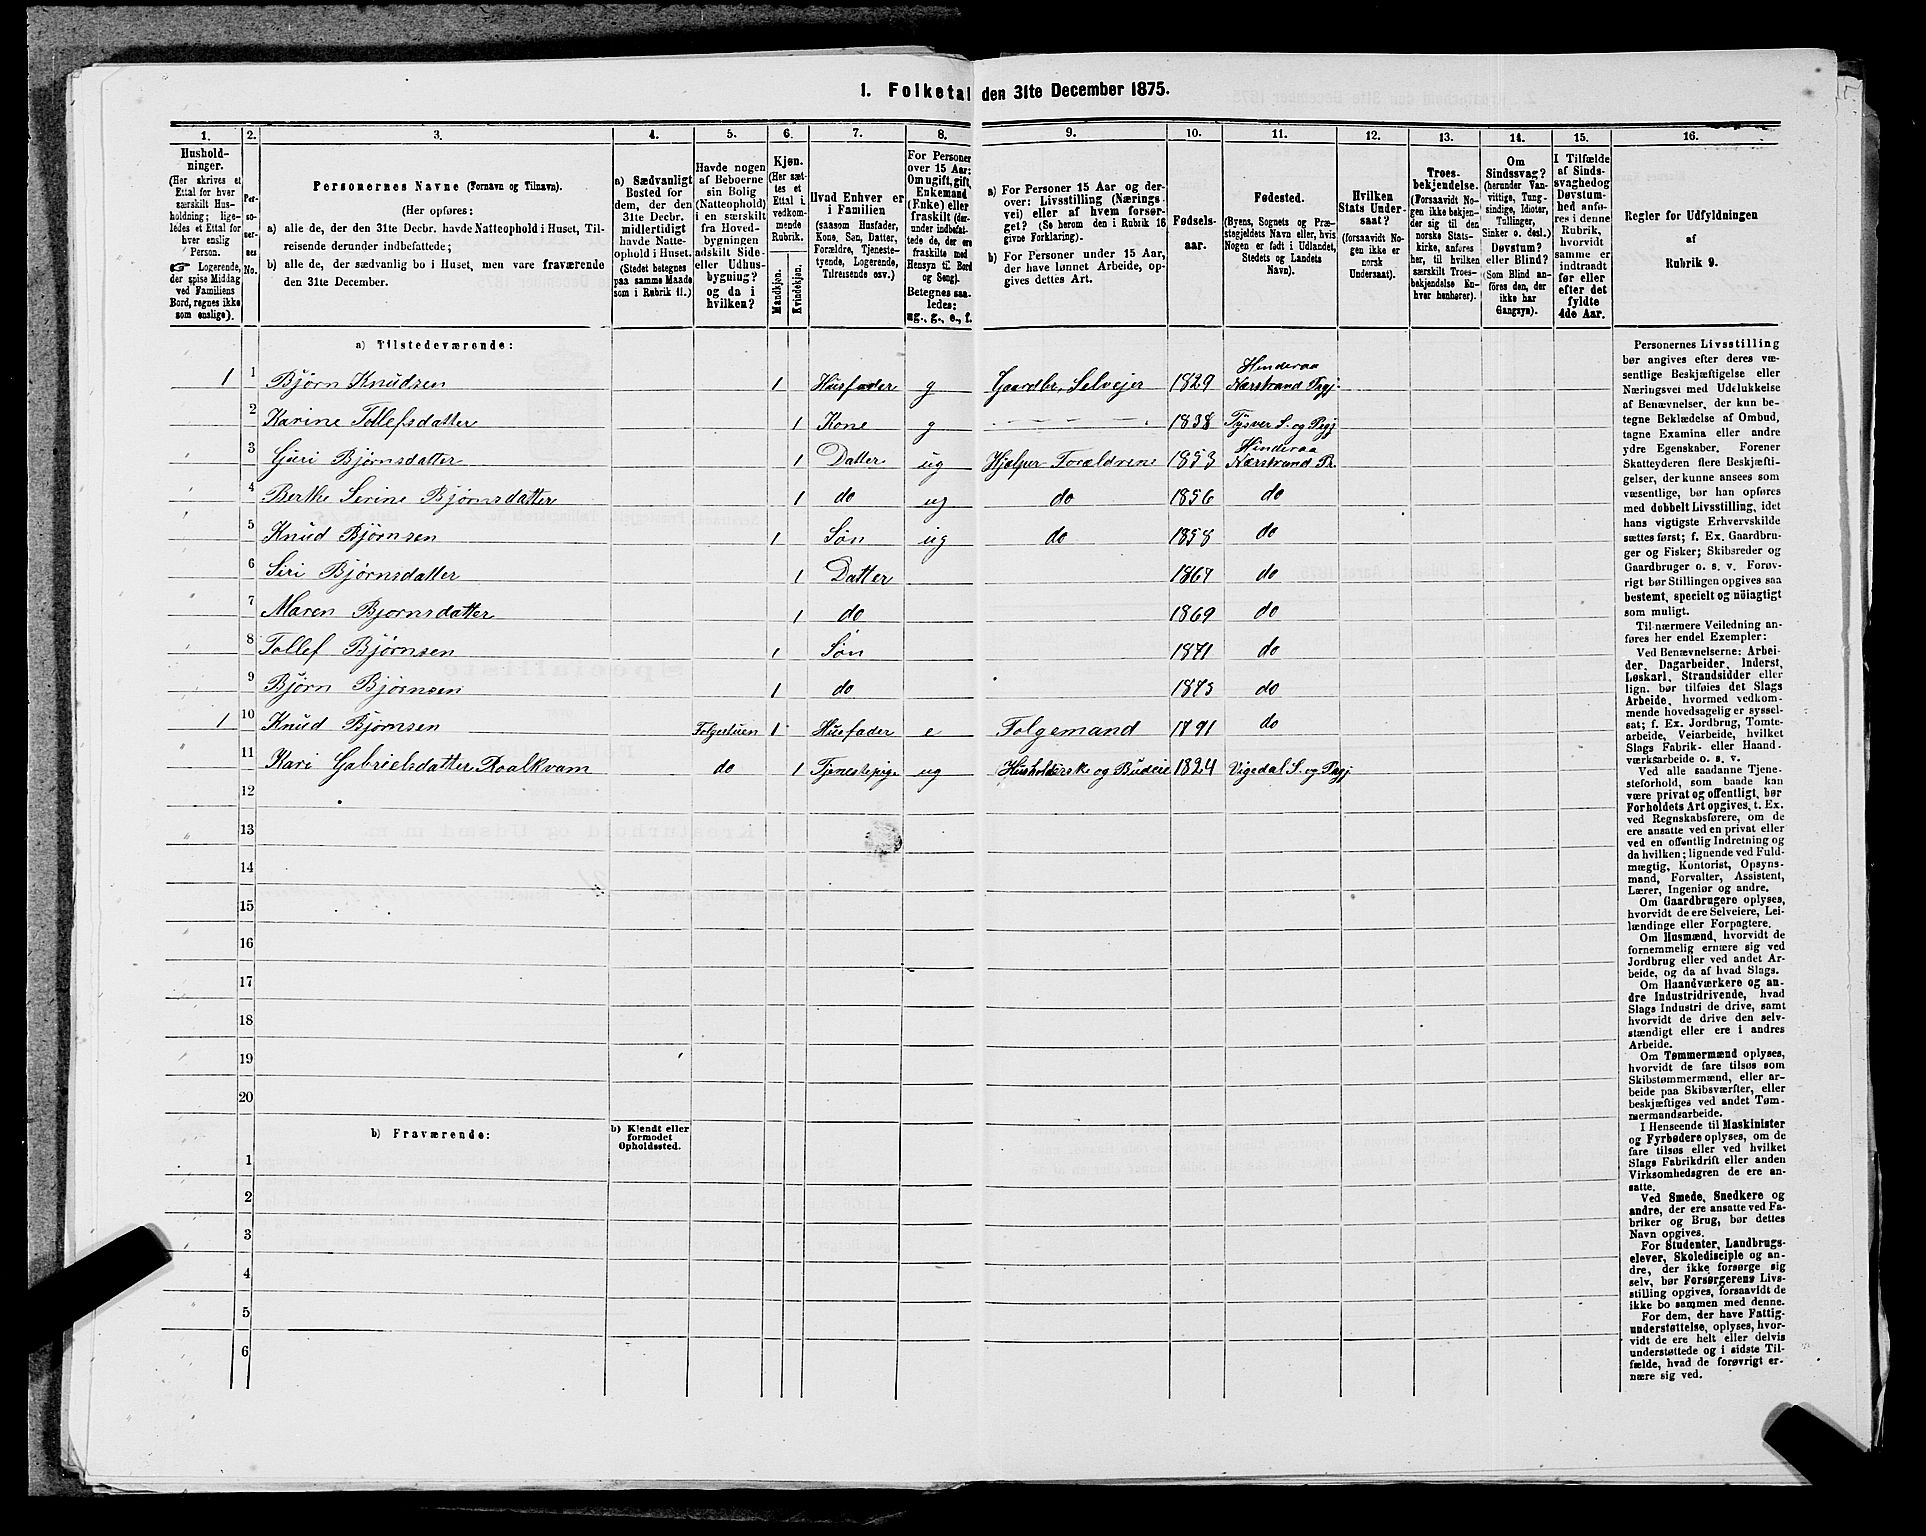 1. Folketal den 31te December 1875.
1. 2. 3. 4. 5. 6. 7. 8. 9. 10. 11. 12. 13. 14. 15. 16.
Hushold-
ninger.
(Her skrives et
Ettal for hver
særskilt Hus-
holdning; lige-
ledes et Ettal for
hver enslig
Person.
☞ Logerende,
der spise Middag
ved Familiens
Bord, regnes ikke
som enslige).
Per-
so-
ner-
nes
No.
Personernes Navne (Fornavn og Tilnavn).
(Her opføres:
a) alle de, der den 31te Decbr. havde Natteophold i Huset, Til-
reisende derunder indbefattede;
b) alle de, der sædvanlig bo i Huset, men vare fraværende
den 31te December.
a) Sædvanligt
Bosted for
dem, der den
31te Decbr.
midlertidigt
havde Natte-
ophold i Huset.
(Stedet betegnes
paa samme Maade
som i Rubrik 11.)
Havde nogen
af Beboerne
sin Bolig
(Natteophold)
i en særskilt
fra Hoved-
bygningen
adskilt Side-
eller Udhus-
bygning?
og da i
hvilken?
Kjøn.
(Her sæt-
tes et
Ettal i
vedkom-
mende
Rubrik.
Mandkjøn.
Kvindekjøn.
Hvad Enhver er
i Familien
(saasom Husfader,
Kone, Søn, Datter,
Forældre, Tjeneste-
tyende, Logerende,
Tilreisende osv.)
For Personer
over 15 Aar:
Om ugift, gift,
Enkemand
(Enke) eller
fraskilt (der-
under indbefat-
tede de, der ere
fraskilte med
Hensyn til Bord
og Seng).
Betegnes saa-
ledes:
ug., g., e., f.
a) For Personer 15 Aar og der-
over: Livsstilling (Nærings-
vei) eller af hvem forsør-
get? (Se herom den i Rubrik 16
givne Forklaring).
b) For Personer under 15 Aar,
der have lønnet Arbeide, op-
gives dettes Art.
Fødsels-
aar.
Fødested.
(Byens, Sognets og Præ-
stegjeldets Navn eller, hvis
Nogen er født i Udlandet,
Stedets og Landets
Navn).
Hvilken
Stats Under-
saat?
(forsaavidt No-
gen ikke er
norsk
Undersaat).
Troes-
bekjendelse.
(Forsaavidt No-
gen ikke bekjen-
der sig til den
norske Stats-
kirke, anføres
her, til hvilken
særskilt Troes-
bekjendelse En-
hver henhører).
Om
Sindssvag?
(herunder Van-
vittige, Tung-
sindige, Idioter,
Tullinger,
Sinker o. desl.)
Døvstum?
eller Blind?
(Som Blind an-
føres den, der
ikke har
Gangsyn).
I Tilfælde
af Sinds-
svaghed og
Døvstum-
hed anfø-
res i denne
Rubrik,
hvorvidt
samme er
indtraadt
før eller
efter det
fyldte
4de Aar.
Regler for Udfyldningen
af
Rubrik 9.
a) Tilstedeværende:
1 1 Bjørn Knudsen 1 Husfader g Gaardbr. Selvejer 1829 Hinderaa Nærstrand Prgj.
2 Karine Tollefsdatter 1 Kone g 1838 Tysvær S. og Prgj
3 Guri Bjørnsdatter 1 Datter ug Hjælper Forældrene 1853 Hinderaa Nærstrand Pr.
4 Berthe Serine Bjørnsdatter 1 do ug do 1856 do
5 Knud Bjørnsen 1 Søn ug do 1858 do
6 Siri Bjørnsdatter 1 Datter 1867 do
7 Maren Bjørnsdatter 1 do 1869 do
8 Tollef Bjørnsen 1 Søn 1871 do
9 Bjørn Bjørnsen 1 do 1873 do
1 10 Knud Bjørnsen Folgestuen 1 Husfader e Folgemand 1791 do
11 Kari Gabrielsdatter Roalkvam do 1 Tjenestepige ug Husholderske og Budeie 1824 Vigedal S. og Prgj
12
13
14
15
16
17
18
19
20
b) Fraværende:
b) Kjendt eller
formodet
Opholdssted.
1
2
3
4
5
6
Personernes Livsstilling
bør angives efter deres væ-
sentlige Beskjæftigelse eller
Næringsvei med Udelukkelse
af Benævnelser, der kun be-
tegne Beklædelse af Ombud,
tagne Examina eller andre
ydre Egenskaber. Forener
Skatteyderen flere Beskjæfti-
gelser, der kunne ansees som
væsentlige, bør han opføres
med dobbelt Livsstilling, idet
hans vigtigste Erhvervskilde
sættes først; f. Ex. Gaardbru-
ger og Fisker; Skibsreder og
Gaardbruger o. s. v. Forøv-
rigt bør Stillingen opgives saa
bestemt, specielt og nöiagtigt
som muligt.
Til nærmere Veiledning an-
føres her endel Exempler:
Ved Benævnelserne: Arbei-
der, Dagarbeider, Inderst,
Løskarl, Strandsidder eller
lign. bør tilføies det Slags
Arbeide, hvormed vedkom-
mende hovedsagelig er syssel-
sat; f. Ex. Jordbrug, Tomte-
arbeide, Veiarbeide, hvilket
Slags Fabrik- eller Haand-
værksarbeide o. s. v.
Ved alle saadanne Tjene-
steforhold, som baade kan
være privat og offentligt, bør
Forholdets Art opgives, t. Ex.
ved Regnskabsførere, om de
ere ansatte ved en privat eller
ved en offentlig Indretning og
da hvilken; lignende ved Fuld-
mægtig, Kontorist, Opsyns-
mand, Forvalter, Assistent,
Lærer, Ingeniør og andre.
Om Gaardbrugere oplyses,
hvorvidt de ere Selveiere, Lei-
lændinge eller Forpagtere.
Om Husmænd, hvorvidt de
fornemmelig ernære sig ved
Jordbrug eller ved andet Ar-
beide, og da af hvad Slags.
Om Haandværkere og an-
dre Industridrivende, hvad
Slags Industri de drive, samt
hvorvidt de drive den selv-
stændigt eller ere i andres
Arbeide.
Om Tømmermænd oplyses,
hvorvidt de fare tilsøs som
Skibstømmermænd, eller ar-
beide paa Skibsværfter, eller
beskjæftiges ved andet Tøm-
mermandsarbeide.
I Henseende til Maskinister
og Fyrbødere oplyses, om de
fare tilsøs eller ved hvilket
Slags Fabrikdrift eller anden
Virksomhedsgren de ere an-
satte.
Ved Smede, Snedkere og
andre, der ere ansatte ved Fa-
briker og Brug, bør dettes
Navn opgives.
For Studenter, Landbrugs-
elever, Skoledisciple og an-
dre, der ikke forsørge sig
selv, bør Forsørgerens Livs-
stilling opgives, forsaavidt de
ikke bo sammen med denne.
For dem, der have Fattig-
understøttelse, oplyses, hvor-
vidt de ere helt eller delvis
understøttede og i sidste Til-
fælde, hvad de forøvrigt er-
nære sig ved.